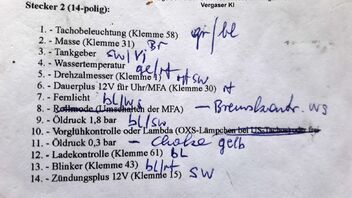 Vergaser KI
Stecker 2 (14-polig):
1. - Tachobeleuchtung (Klemme 58) gr/bl
2. - Masse (Klemme 31) Br
3. - Tankgeber sw/Vi
4. - Wassertemperatur ge/rt
5. - Drehzalmesser (Klemme 1) rt/sw
6. - Dauerplus 12V für Uhr/MFA (Klemme 30) rt
7. - Fernlicht bl/ws
8. - Rollmode (Umschalten der MFA) - Bremskontr. ws
9. - Öldruck 1,8 bar bl/sw
10. - Vorglühkontrolle oder Lambda (OXS-Lämpchen bei
11. - Öldruck 0,3 bar - Choke gelb
12. - Ladekontrolle (Klemme 61) bL
13. - Blinker (Klemme 43) bl/rt
14. - Zündungsplus 12V (Klemme 15) SW